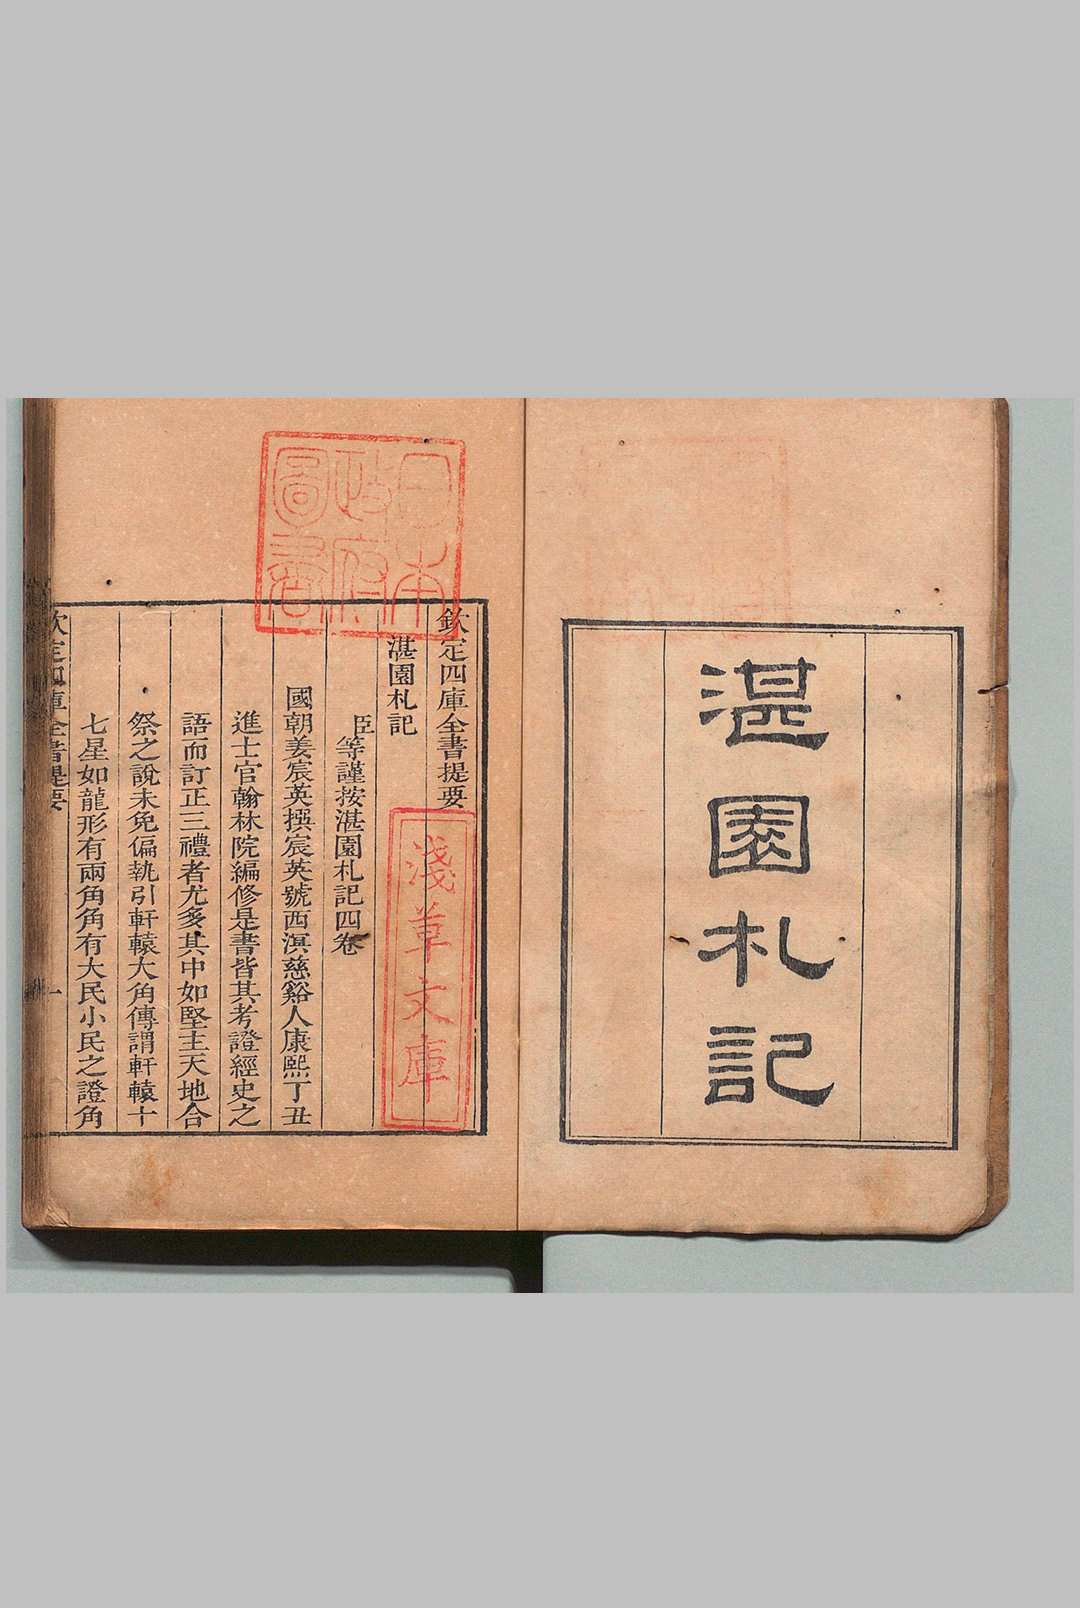 湛園札記
欽定四庫全書提要
湛園札記
臣等謹按湛園札記四卷
國朝姜宸英撰宸英號西溟慈谿人康熙丁丑
進士官翰林院編修是書皆其考證經史之
語而訂正三禮者尤多其中如堅主天地合
祭之說未免偏執引軒轅大角傳謂軒轅十
七星如龍形有兩角角有大民小民之證角
欽定四庫全書提要
一
日本
政府
圖書
淺草文庫